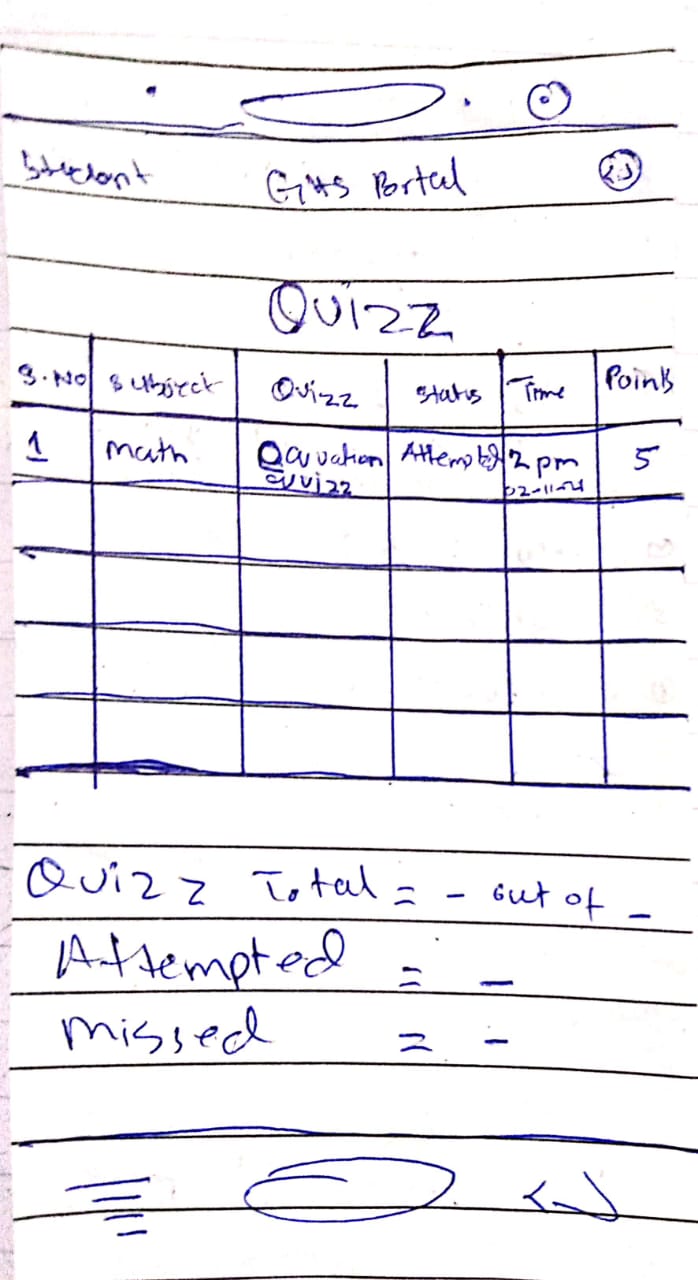 Student Gits Portal
Quizz
S.No Subject Quizz Status Time Points
1 Math Attempted 2 pm 5
quizz 02-11-21
Quizz Total = - out of -
Attempted = -
Missed = -